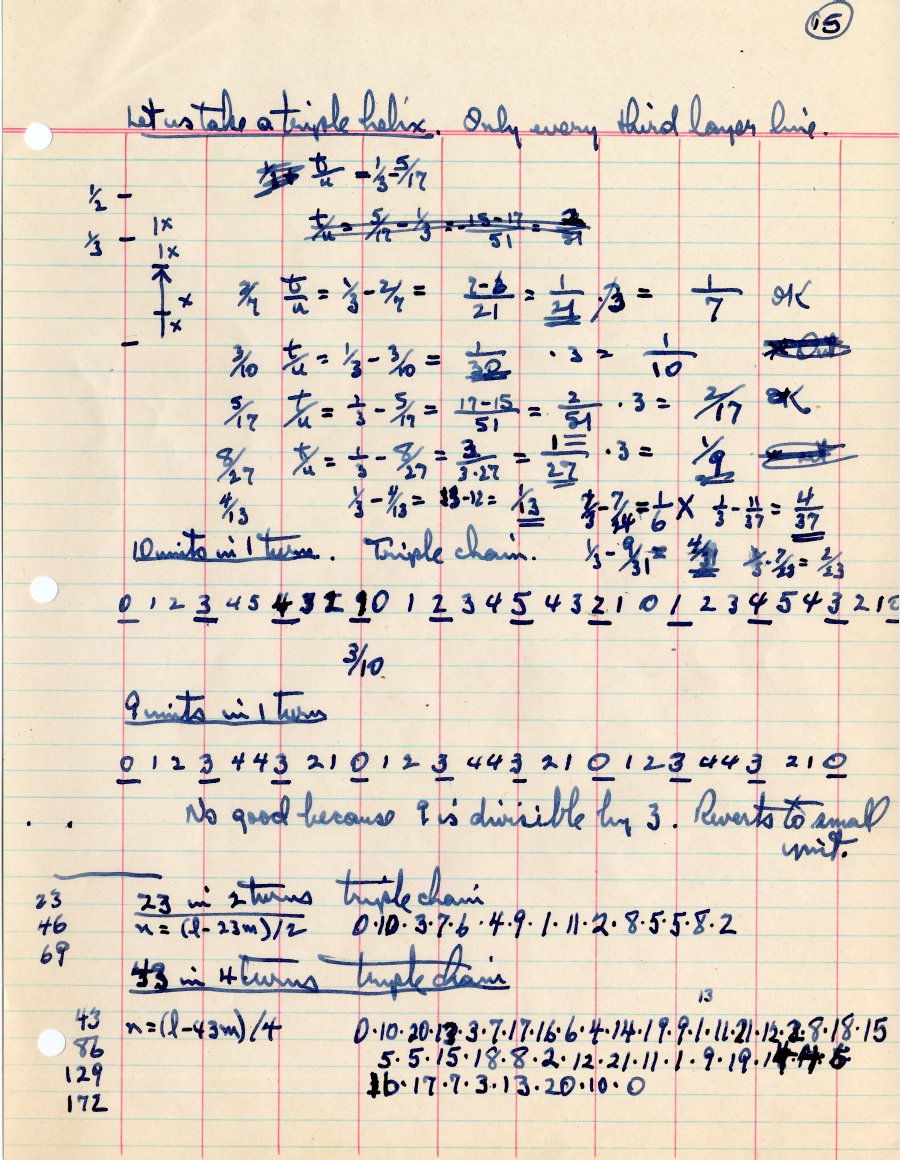 15
Let us take a triple helix. Only every third layer line.
t/u = 1/3 - 5/17
1/2
1/3
1x
1x
x
x
t/u = 5/17 - 1/3 = 15-17/51 = 2/51
2/7 t/u = 1/3 - 2/7 = 7-6/21 = 1/21 · 3 = 1/7 OK
3/10 t/u = 1/3 - 3/10 = 1/30 · 3 = 1/10
5/17 t/u = 1/3 - 5/17 = 17-15/51 = 2/51 · 3 = 2/17 OK
8/27 t/u = 1/3 - 8/27 = 3/3·27 = 1/27 · 3 = 1/9
4/13 1/3 - 4/13 = 13-12 = 1/13 1/3 - 11/37 = 4/37
10 units in 1 turn. Triple chain. 1/3 - 9/31 = 4/31 1/3 - 7/23 = 2/23
0 1 2 3 4 5 4 3 2 1 0 1 2 3 4 5 4 3 2 1 0 1 2 3 4 5 4 3 2 1 0
3/10
9 units in 1 turn
0 1 2 3 4 4 3 2 1 0 1 2 3 4 4 3 2 1 0 1 2 3 4 4 3 2 1 0
No good because 9 is divisible by 3. Reverts to small
unit.
23
46
69
23 in 2 turns triple chain
n = (l-23m)/2 0·10·3·7·6·4·9·1·11·2·8·5·5·8·2
43 in 4 turns triple chain
13
43
86
129
172
n = (l-43m)/4 0·10·20·13·3·7·17·16·6·4·14·19·9·1·11·21·12·2·8·18·15
5·5·15·18·8·2·12·21·11·1·9·19·14·4·6
16·17·7·3·13·20·10·0